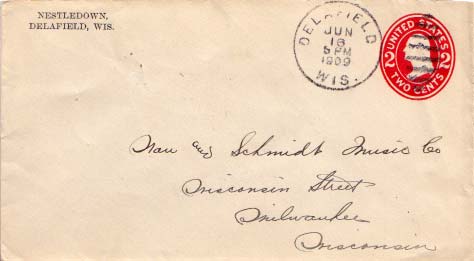 NESTLEDOWN,
DELAFIELD, WIS.
DELAFIELD
JUN
16
5 PM
1909
WIS.
UNITED STATES
2 2
TWO CENTS
Nau and Schmidt Music Co
Wisconsin Street
Milwaukee
Wisconsin